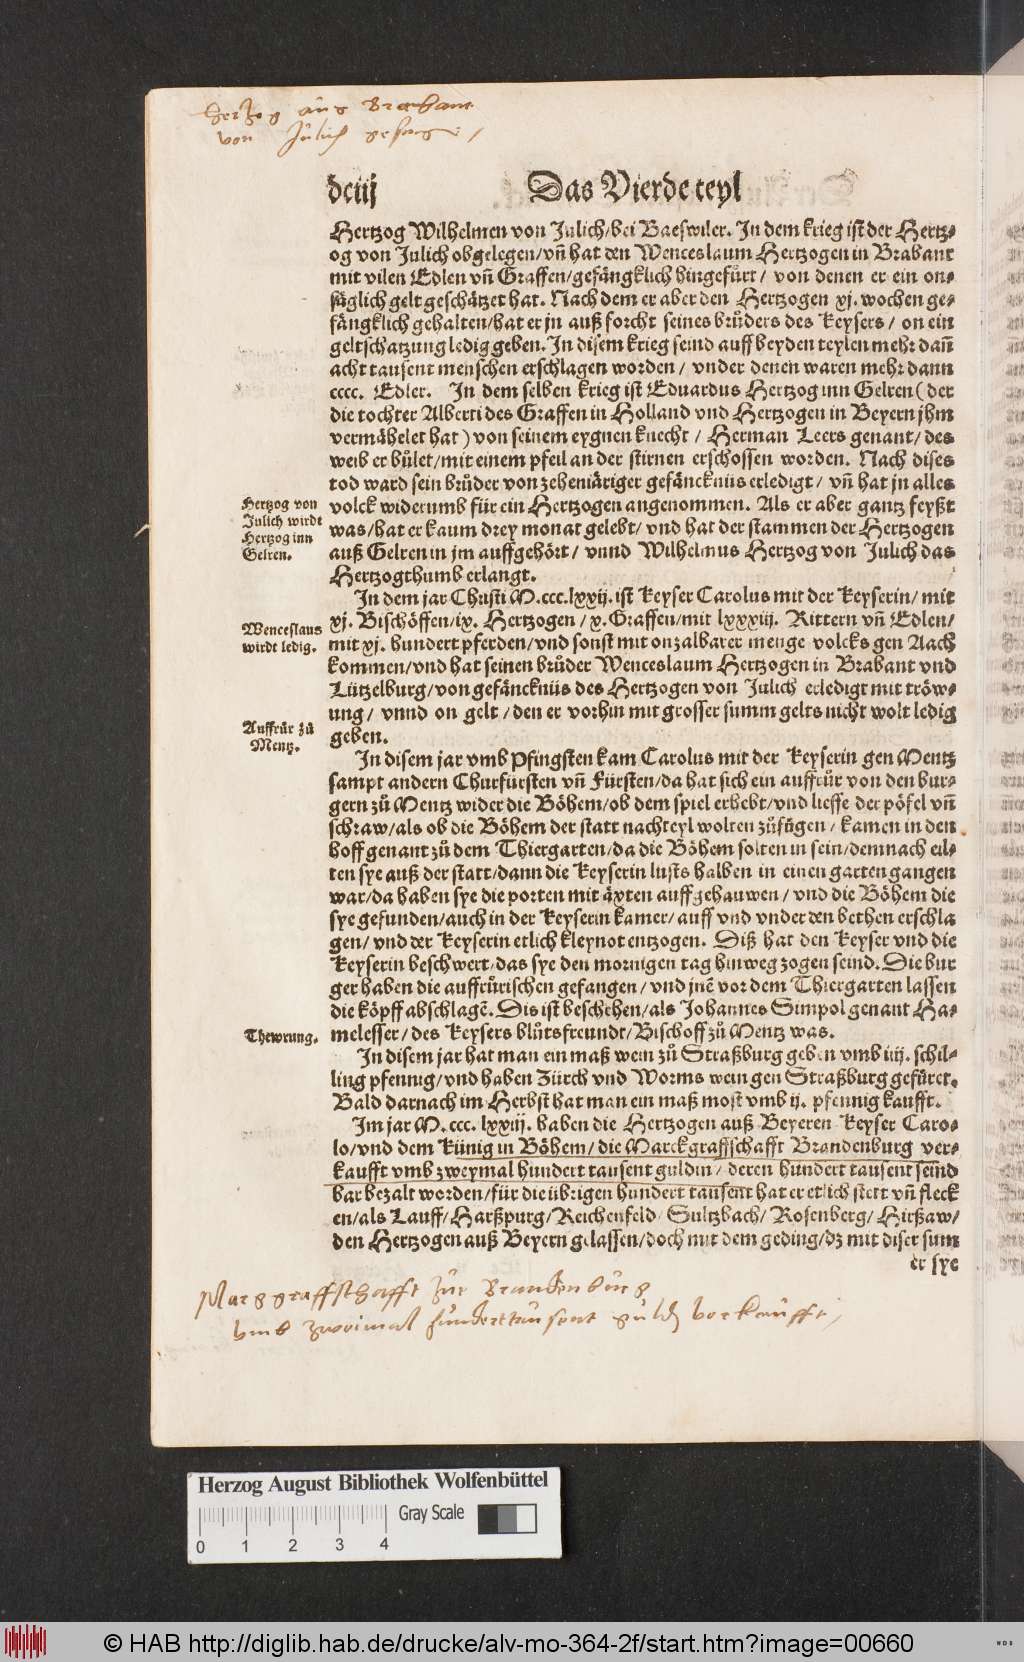 Hertzog aus Brabant
von Jülich gefangē /
dciij
Das Vierde teyl
Hertzog Wilhelmen von Julich/bei Baeswiler. In dem krieg ist der Hertz⸗
og von Julich obgelegen/vñ hat den Wenceslaum Hertzogen in Brabant
mit vilen Edlen vñ Graffen/gefängklich hingefuͤrt/ von denen er ein on⸗
säglich gelt geschätzet hat. Nach dem er aber den Hertzogen xj. wochen ge⸗
fängklich gehalten/hat er jn auß forcht seines bruͤders des Keysers/ on ein
geltschatzung ledig geben. In disem krieg seind auff beyden teylen mehr dañ
acht tausent menschen erschlagen worden/ vnder denen waren mehr dann
cccc. Edler. In dem selben krieg ist Eduardus Hertzog inn Gelren (der
die tochter Alberti des Graffen in Holland vnd Hertzogen in Beyern jhm
vermähelet hat) von seinem eygnen knecht/ Herman Leers genant/ des
weib er buͤlet/mit einem pfeil an der stirnen erschossen worden. Nach dises
tod ward sein bruͤder von zeheniäriger gefäncknüs erledigt/ vñ hat jn alles
volck widerumb für ein Hertzogen angenommen. Als er aber gantz feyßt
was/hat er kaum drey monat gelebt/ vnd hat der stammen der Hertzogen
auß Gelren in jm auffgehört/ vnnd Wilhelmus Hertzog von Julich das
Hertzogthumb erlangt.
Hertzog von
Julich wirdt
Hertzog inn
Gelren.
In dem jar Christi M.ccc.lxxij. ist Keyser Carolus mit der Keyserin/ mit
xj. Bischöffen/ix. Hertzogen/ x. Graffen/mit lxxxiij. Rittern vñ Edlen/
mit xj. hundert pferden/vnd sonst mit onzalbarer menge volcks gen Aach
kommen/vnd hat seinen bruͤder Wenceslaum Hertzogen in Brabant vnd
Lützelburg/von gefäncknüs des Hertzogen von Julich erledigt mit tröw⸗
ung/ vnnd on gelt/ den er vorhin mit grosser summ gelts nicht wolt ledig
geben.
Wenceslaus
wirdt ledig.
Auffruͤr zuͦ
Mentz.
In disem jar vmb Pfingsten kam Carolus mit der Keyserin gen Mentz
sampt andern Churfürsten vñ Fürsten/da hat sich ein auffruͤr von den bur⸗
gern zuͦ Mentz wider die Böhem/ob dem spiel erhebt/vnd lieffe der pöfel vñ
schraw/als ob die Böhem der statt nachteyl wolten zuͦfuͤgen/ kamen in den
hoff genant zuͦ dem Thiergarten/da die Böhem solten in sein/demnach eil⸗
ten sye auß der statt/dann die Keyserin lusts halben in einen garten gangen
war/da haben sye die porten mit äxten auffgehauwen/ vnd die Böhem die
sye gefunden/auch in der Keyserin kamer/ auff vnd vnder den bethen erschla
gen/ vnd der Keyserin etlich kleynot entzogen. Diß hat den Keyser vnd die
Keyserin beschwert/das sye den mornigen tag hinweg zogen seind. Die bur
ger haben die auffruͤrischen gefangen/ vnd jnē vor dem Thiergarten lassen
die köpff abschlagē. Dis ist beschehen/als Johannes Simpol genant Ha⸗
melesser/ des Keysers bluͤtsfreundt/Bischoff zuͦ Mentz was.
Thewrung.
In disem jar hat man ein maß wein zuͦ Straßburg geben vmb iiij. schil⸗
ling pfennig/vnd haben Zürch vnd Worms wein gen Straßburg gefüret.
Bald darnach im Herbst hat man ein maß most vmb ij. pfennig kaufft.
Im jar M.ccc. lxxiij. haben die Hertzogen auß Beyeren Keyser Caro⸗
lo/vnd dem Künig in Böhem/ die Marckgraffschafft Brandenburg ver⸗
kaufft vmb zweymal hundert tausent guldin/ deren hundert tausent seind
bar bezalt worden/für die übrigen hundert tausent hat er etlich stett vñ fleck
en/als Lauff/Harßpurg/Reichenfeld/Sultzbach/ Rosenberg/ Hirßaw/
den Hertzogen auß Beyern gelassen/doch mit dem geding/dz mit diser sum
er sye
Marggraffschafft zur Brandenburg
vmb zweimal hunderttausent guldē verkaufft/
Herzog August Bibliothek Wolfenbüttel
Gray Scale
0 1 2 3 4
© HAB http://diglib.hab.de/drucke/alv-mo-364-2f/start.htm?image=00660